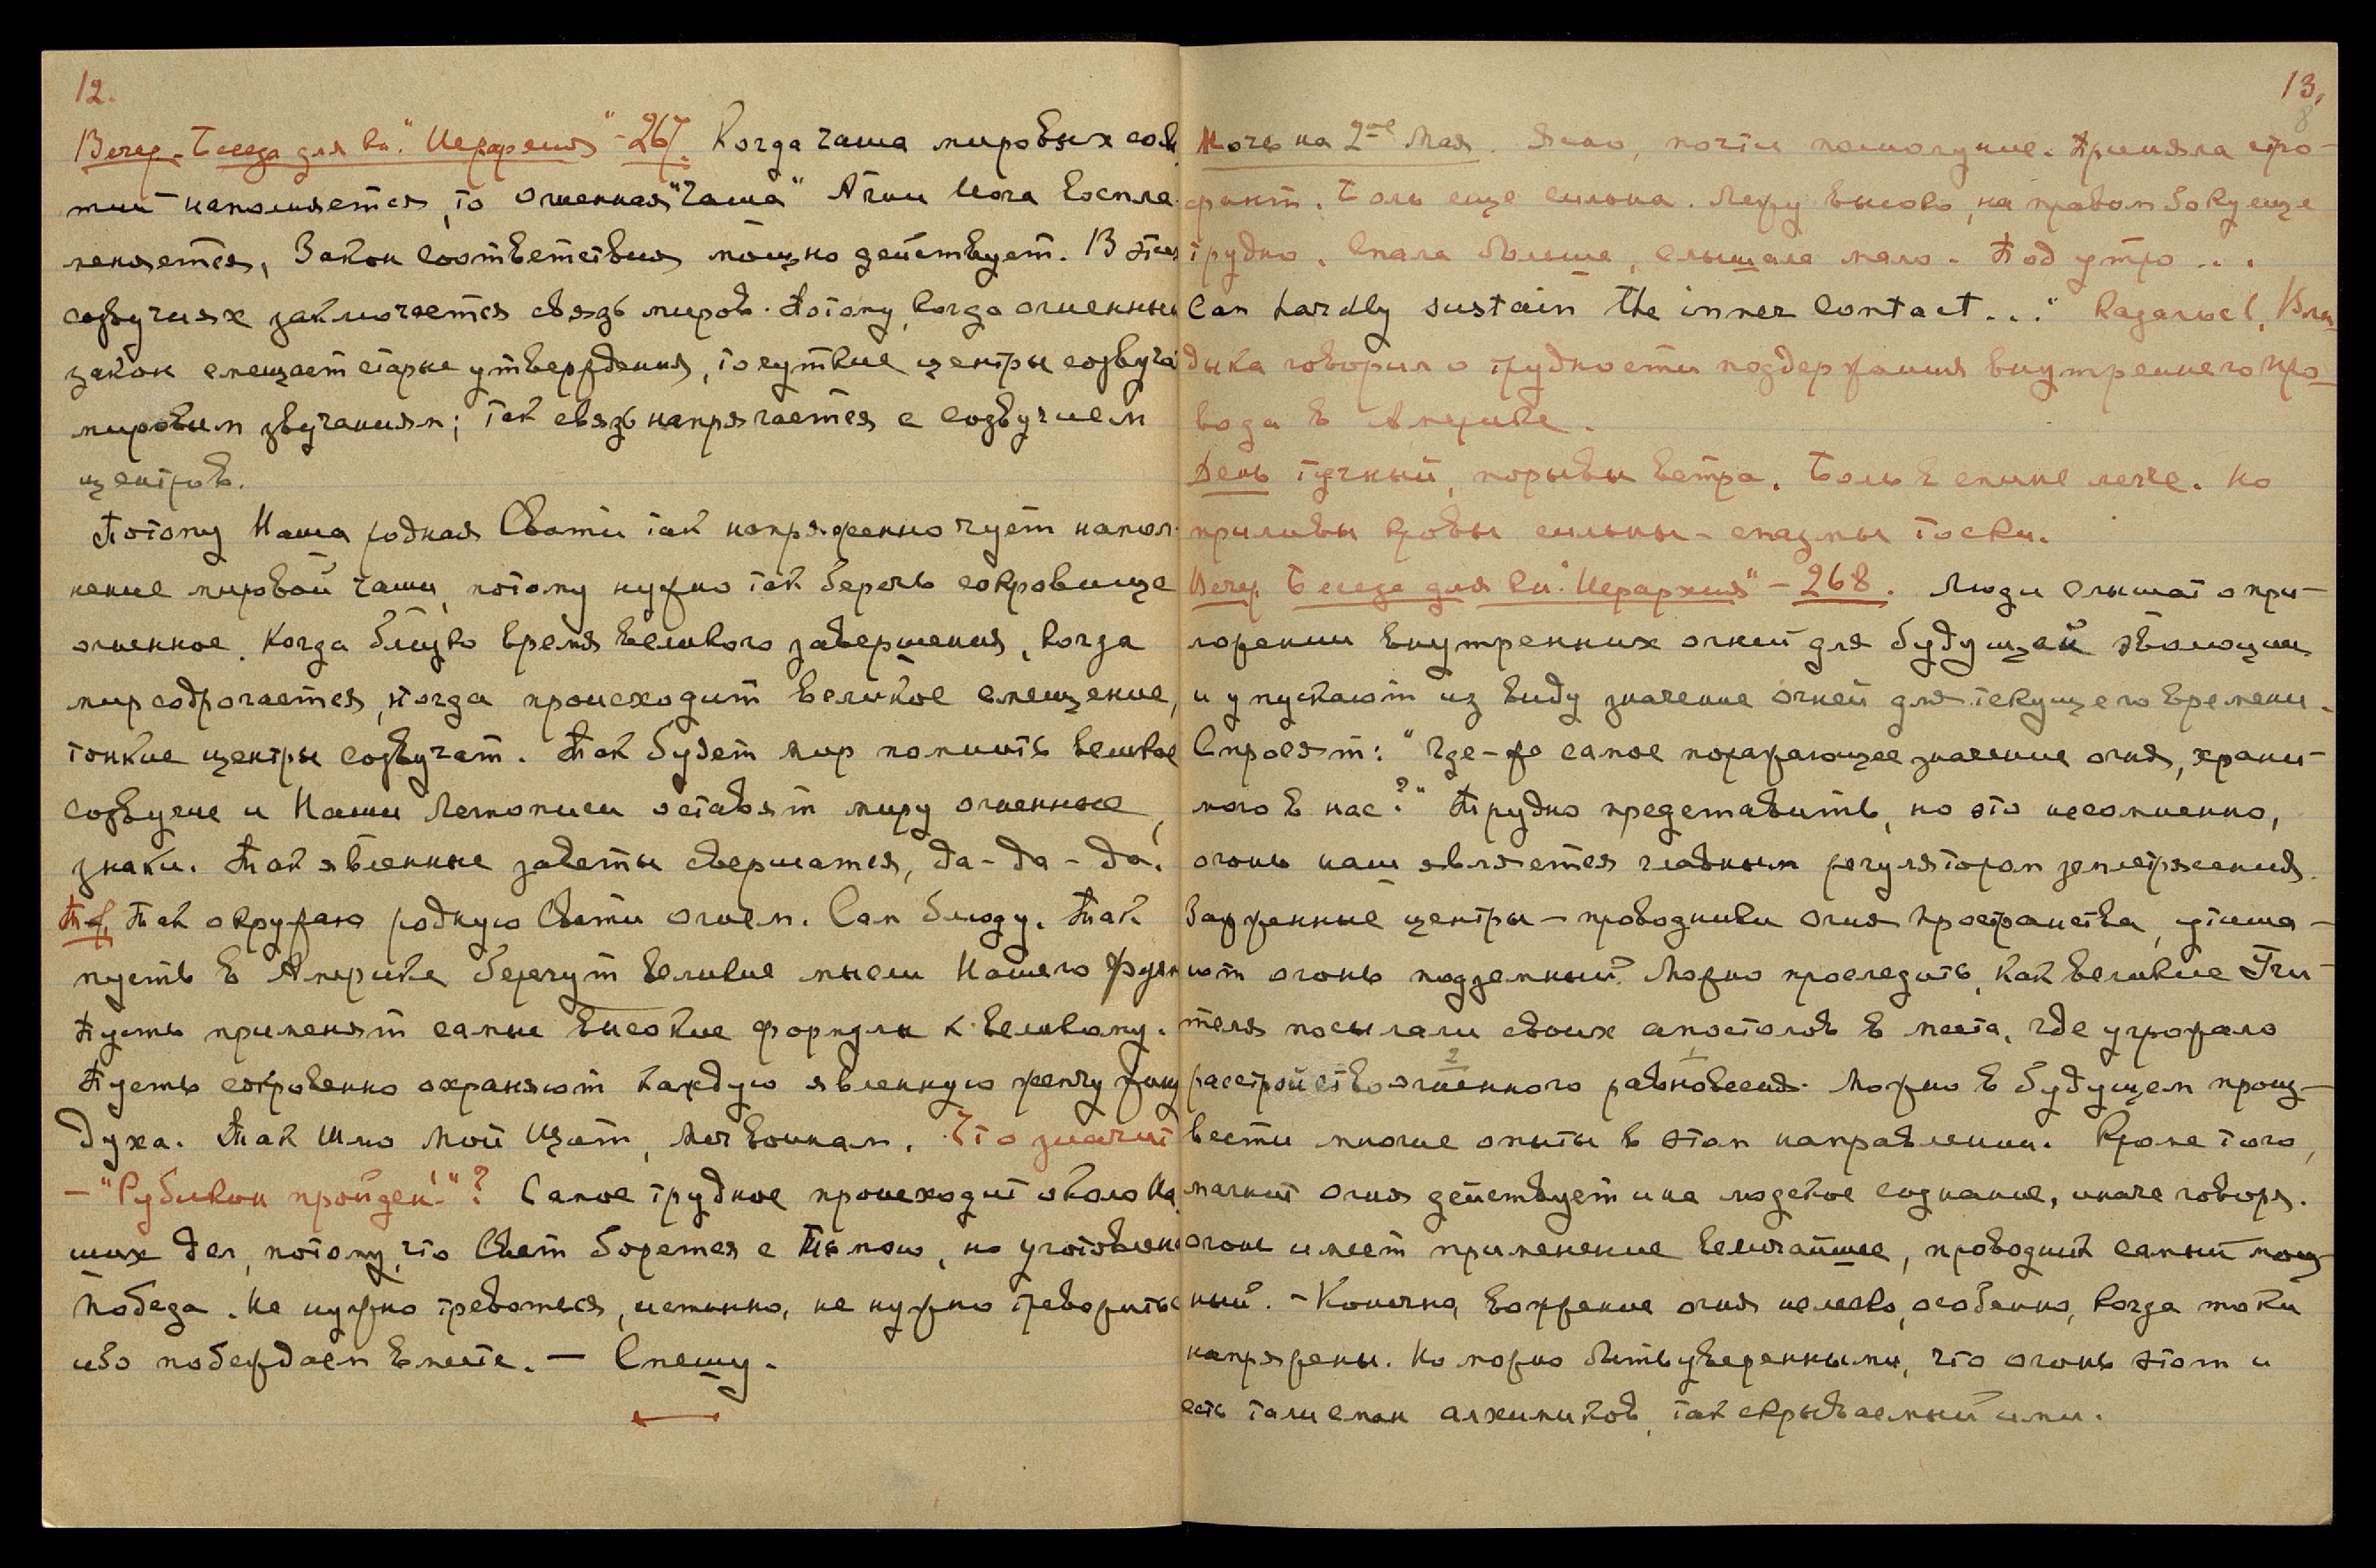 12.
Вечер. Беседа для кн. "Иерархия" - 267. Когда чаша мировых собы
тий наполняется, то огненная "Чаша" Агни Йога воспла
меняется, Закон соответствия мощно действует. В этих
созвучиях заключается связь миров. Потому, когда огненный
закон смещает старые утверждения, то чуткие центры созвучат
мировым звучаниям; так связь напрягается с созвучием
центров.
Потому Наша родная Свати так напряженно чует напол-
нение мировой чаши, потому нужно так беречь сокровище
огненное. Когда близко время великого завершения, когда
мир содрогается, когда происходит великое смещение,
тонкие центры созвучат. Так будет мир помнить великое
созвучие и Наши Летописи оставят миру огненные
знаки. Так явленные заветы свершатся, да-да-да.
Так окружаю родную Свати огнем. Сам блюду. Так
пусть в Америке берегут великие мысли Нашего
Пусть применят самые высокие формулы к великому.
Пусть сокровенно охраняют каждую явленную
духа. Так Шлю Мой Щит, Меч воинам. Что значит
- "Рубикон пройден"? Самое трудное происходит около На
ших дел, потому, что Свет борется с Тьмою, но уготовлена
победа. Не нужно тревожиться, истинно, не нужно тревожиться
ибо побеждаем вместе. — Спешу.
13.
8
Ночь на 2ое Мая. Ясно, почти полнолуние. Приняла стро-
фант. Боль еще сильна. Лежу высоко, на правом боку еще
трудно. Спала больше, слышала мало. Под утро...
Can hardly sustain the inner contact..." Вла
дыка говорил о трудности поддержания внутреннего про
вода в Америке.
День тучный, порывы ветра. Боль в спине легче. Но
приливы крови сильны - спазмы тоски.
Вечер. Беседа для кн. "Иерархия" - 268. Люди слышат о при-
горении внутренних огней для будущей эволюции
и упускают из виду значение огней для текущего времени.
Спросят: "Где-же самое поражающее значение огня, храни-
мого в нас?" Трудно представить, но это несомненно,
огонь наш является главным регулятором землетрясения.
Зажженные центры - проводники огня пространства, утиша-
ют огонь подземный. Можно проследить, как Великие Учи-
теля посылали своих апостолов в места, где угрожало
расстройство огненного равновесия. Можно в будущем произ-
вести многие опыты в этом направлении. Кроме того,
магнит огня действует и на людское сознание, иначе говоря.
огонь имеет применение величайшее, проводник самый мощ-
ный. - Конечно, возжжение огня нелегко, особенно, когда токи
напряжены. Но можно быть уверенными, что огонь этот и
есть талисман алхимиков, так скрываемый ими.